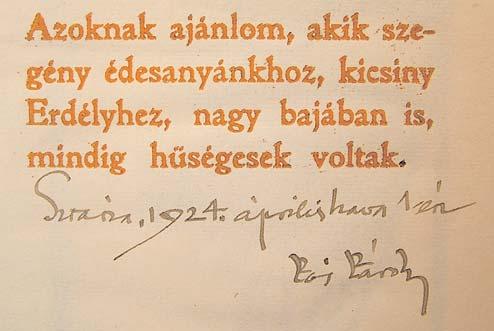 Azoknak ajánlom, akik sze-
gény édesanyánkhoz, kicsiny
Erdélyhez, nagy bajában is,
mindig hűségesek voltak.
Sztána, 1924. április hava 1én
Kós Károly